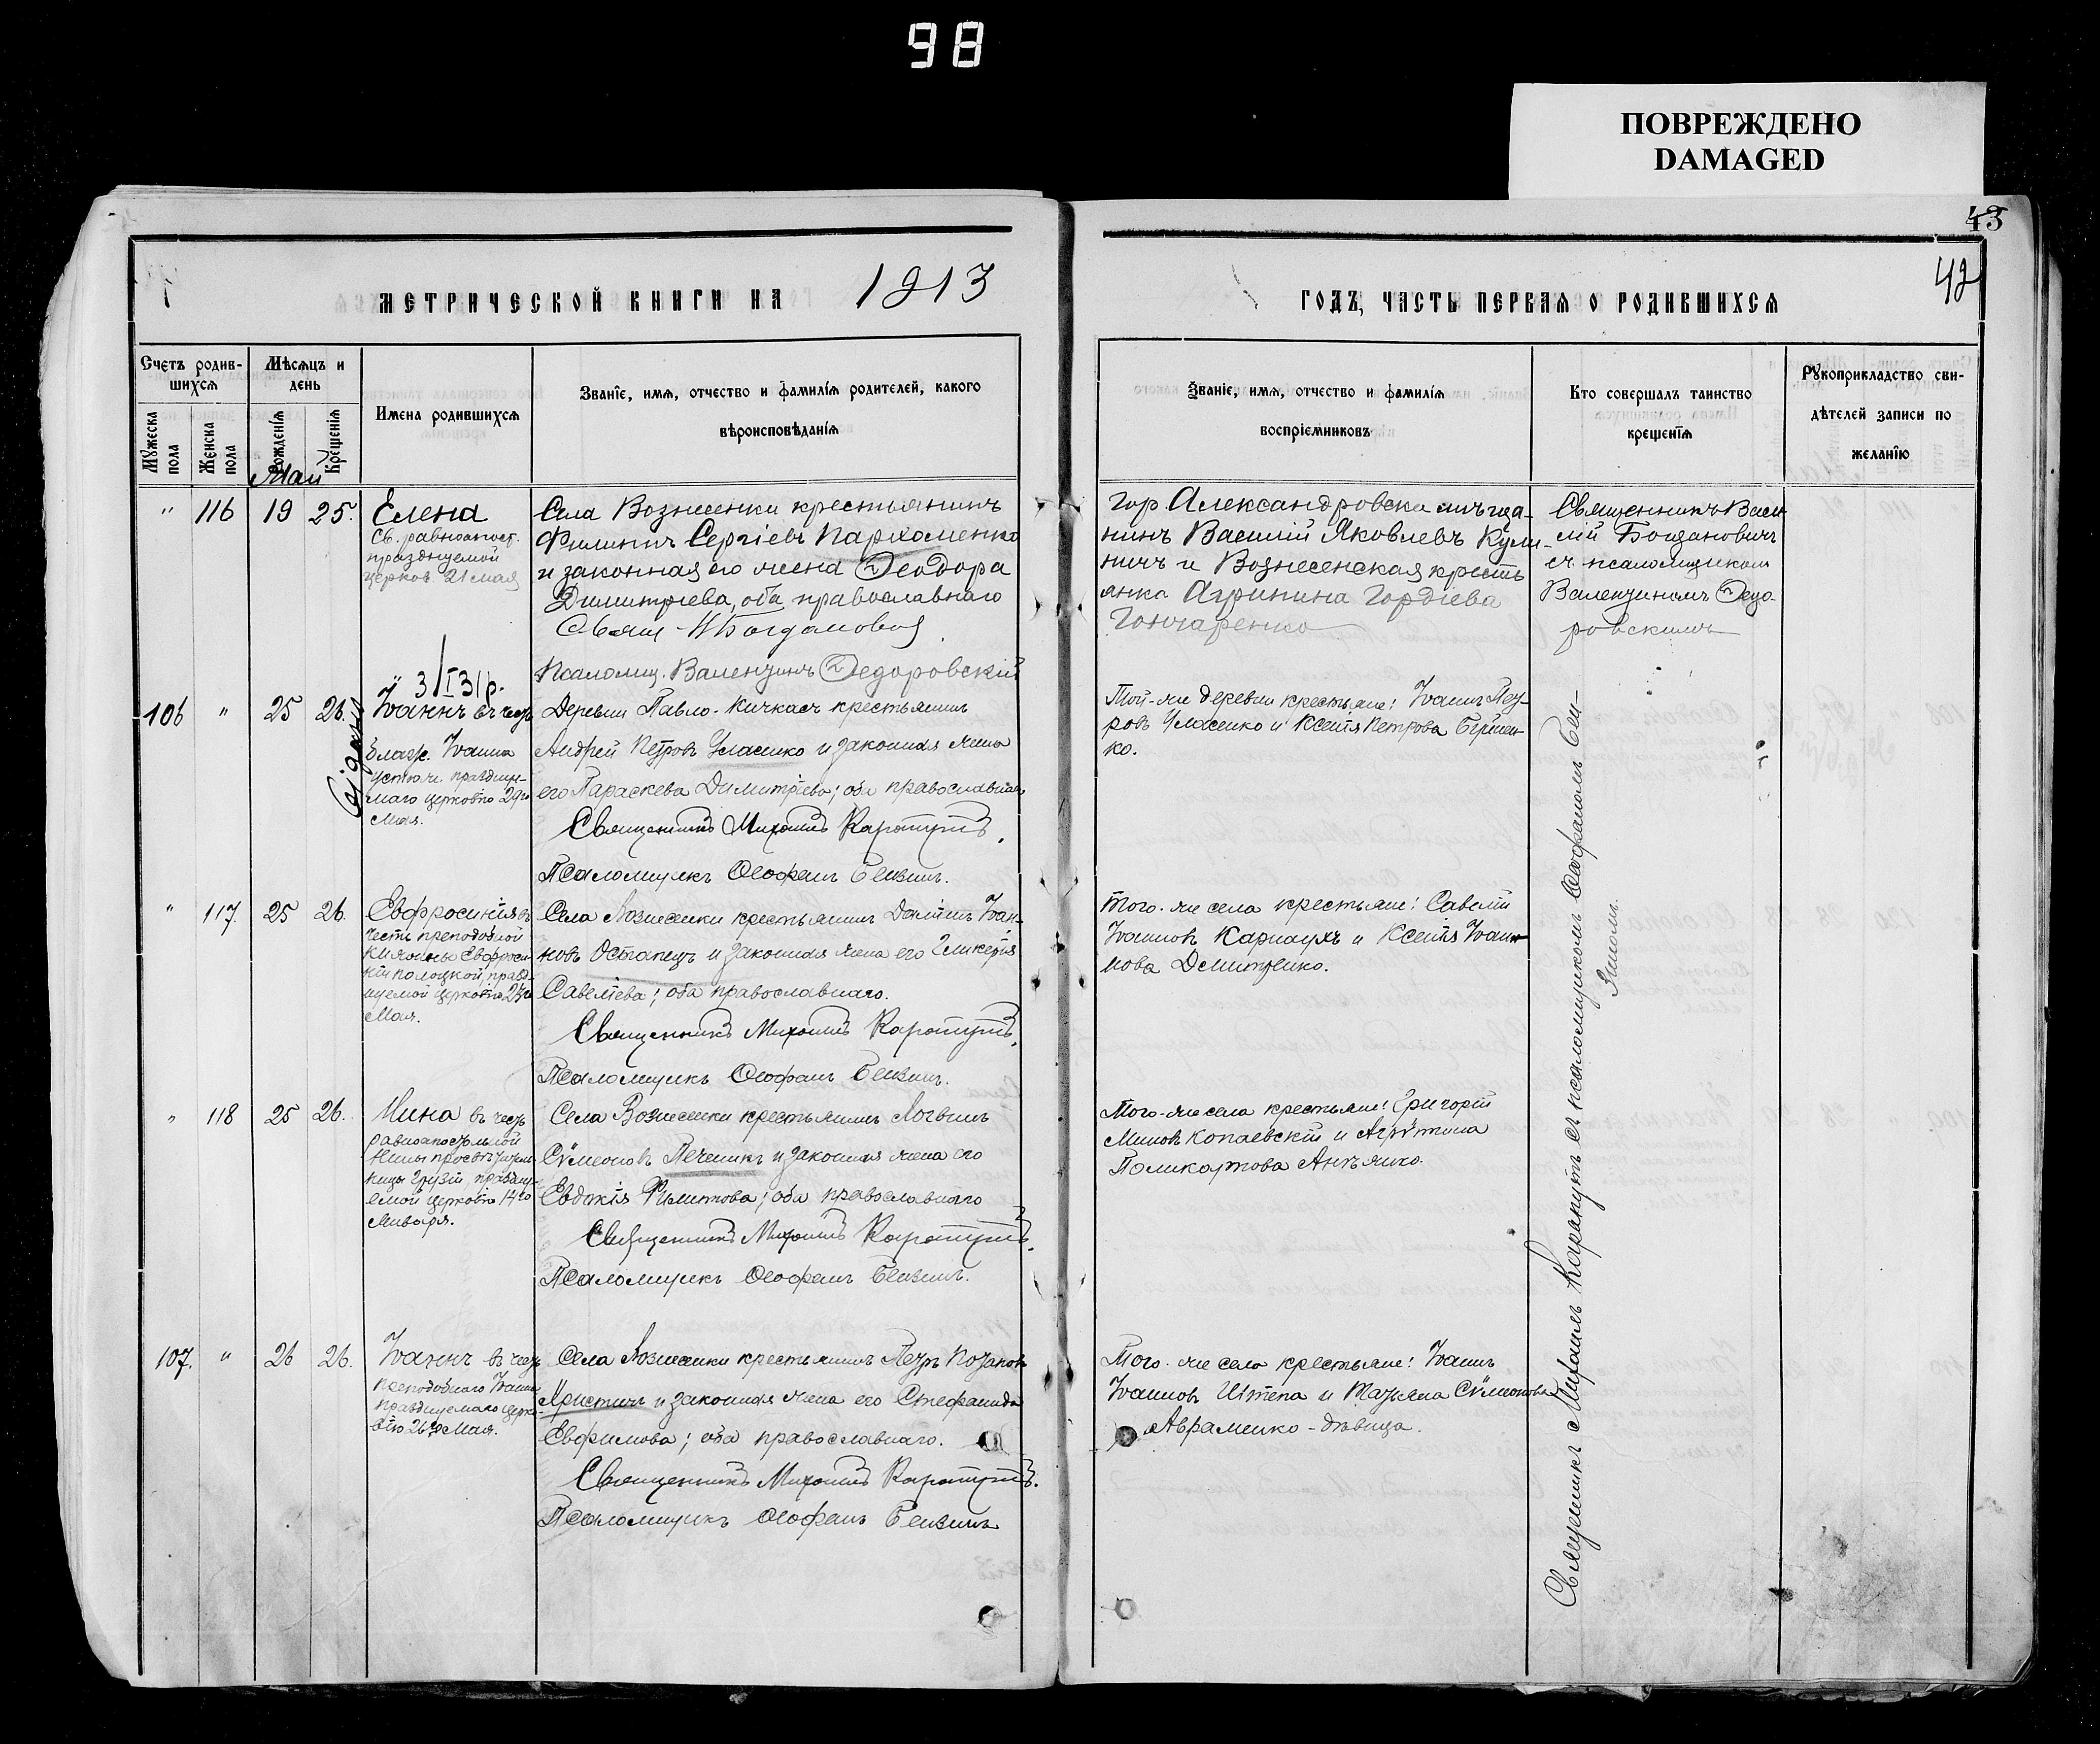 98
ПОВРЕЖДЕНО
DAMAGED
43
42
МЕТРИЧЕСКОЙ КНИГИ НА 1913
ГОДЪ, ЧАСТЬ ПЕРВАЯ О РОДИВШИХСЯ
Счетъ родив-
шихся
Мужеска
пола
Женска
пола
Мѣсяцъ и
день
Рожденія
Крещенія
Май
Имена родившихся
Званіе, имя, отчество и фамилія родителей, какого
вѣроисповѣданія
Званіе, имя, отчество и фамилія
воспріемниковъ
Кто совершалъ таинство
крещенія
Рукоприкладство сви-
дѣтелей записи по
желанію
" 116 19 25.
Елена
Св. равноапост.
празднуемой
церков. 21 мая
Села Вознесенки крестьянинъ
Филиппъ Сергіевъ Пархоменко
и законная его жена Ѳеодора
Димитріева, оба православнаго
Свящ. Богдановъ
Псаломщ. Валентинъ Ѳедоровскій
гор. Александровска мѣща-
нинъ Василій Яковлевъ Кули-
ничъ и Вознесенская кресть
янка Агрипина Гордіева
Гончаренко
Священникъ Васи
лій Богдановичъ
съ псаломщикомъ
Валентиномъ Ѳедо-
ровскимъ
3/I 31 р.
106 " 25 26.
Іоаннъ въ честь
блаж. Іоанна
Устюж. праздну-
маго церковію 29го
Мая.
Деревни Павло-Кичкасъ крестьянинъ
Андрей Петровъ Власенко и законная жена
его Параскева Димитріева; оба православнаго
Священникъ Михаилъ
Псаломщикъ Ѳеофанъ
Той-же деревни крестьяне: Іоаннъ Пет-
ровъ Власенко и Ксенія Петрова
ко.
" 117. 25 26.
Евфросинія въ
честь преподобной
княжны Евфроси
ніи полоцкой, празд-
нуемой церковію 23го
Мая.
Села Вознесенки крестьянинъ Даніилъ Іоан-
новъ Остапецъ и законная жена его Гликерія
Савеліева; оба православнаго.
Священникъ Михаилъ
Псаломщикъ Ѳеофанъ
Того-же села крестьяне: Савелій
Іоанновъ Карнаухъ и Ксенія Іоан
нова Дмитренко.
" 118 25 26.
Нина въ честь
равноапостольной
Нины просвѣтитель
ницы Грузіи праздну
емой церковію 14го
Января.
Села Вознесенки крестьянинъ Логвинъ
Сѵмеоновъ Печеникъ и законная жена его
Евдокія Филиппова; оба православнаго
Священникъ Михаилъ
Псаломщикъ Ѳеофанъ
Того-же села крестьяне: Григорій
Миновъ Копаевскій и Агрипина
Поликарпова
107. " 26 26.
Іоаннъ въ честь
преподобнаго Іоанна
празднуемаго церко-
вію 26го Мая.
Села Вознесенки крестьянинъ Петръ
Христичъ и законная жена его Стефанида
Евфимова; оба православнаго.
Священникъ Михаилъ
Псаломщикъ Ѳеофанъ
Того-же села крестьяне: Іоаннъ
Іоанновъ Штепа и Татьяна Сѵмеонова
Авраменко-дѣвица.
Священникъ Михаилъ съ псаломщикомъ Ѳеофаномъ